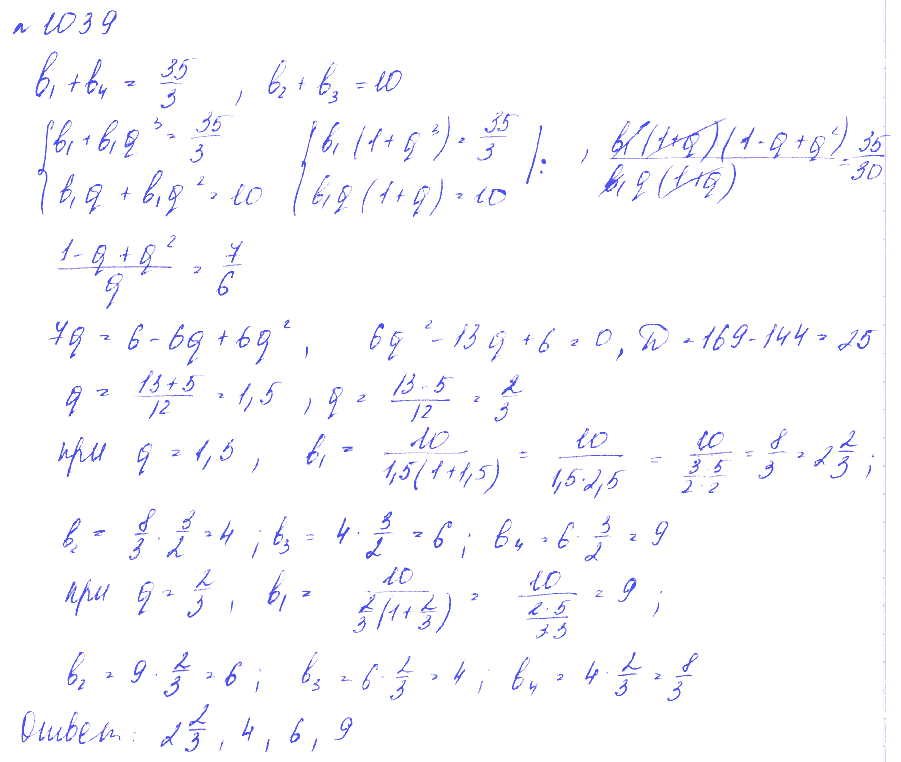 № 1039
b₁ + b₄ = 35/3, b₂ + b₃ = 10
{ b₁ + b₁q³ = 35/3 { b₁(1+q³) = 35/3 | : , b₁(1+q)(1-q+q²)/b₁q(1+q) = 35/30
{ b₁q + b₁q² = 10 { b₁q(1+q) = 10
(1-q+q²)/q = 7/6
7q = 6 - 6q + 6q², 6q² - 13q + 6 = 0, D = 169 - 144 = 25
q = (13+5)/12 = 1,5, q = (13-5)/12 = 2/3
при q = 1,5, b₁ = 10/1,5(1+1,5) = 10/1,5·2,5 = 10/(3·5/2·2) = 8/3 = 2 2/3;
b₂ = 8/3 · 3/2 = 4; b₃ = 4 · 3/2 = 6; b₄ = 6 · 3/2 = 9
при q = 2/3, b₁ = 10/(2/3(1+2/3)) = 10/(2·5/3·3) = 9;
b₂ = 9 · 2/3 = 6; b₃ = 6 · 2/3 = 4; b₄ = 4 · 2/3 = 8/3
Ответ: 2 2/3, 4, 6, 9